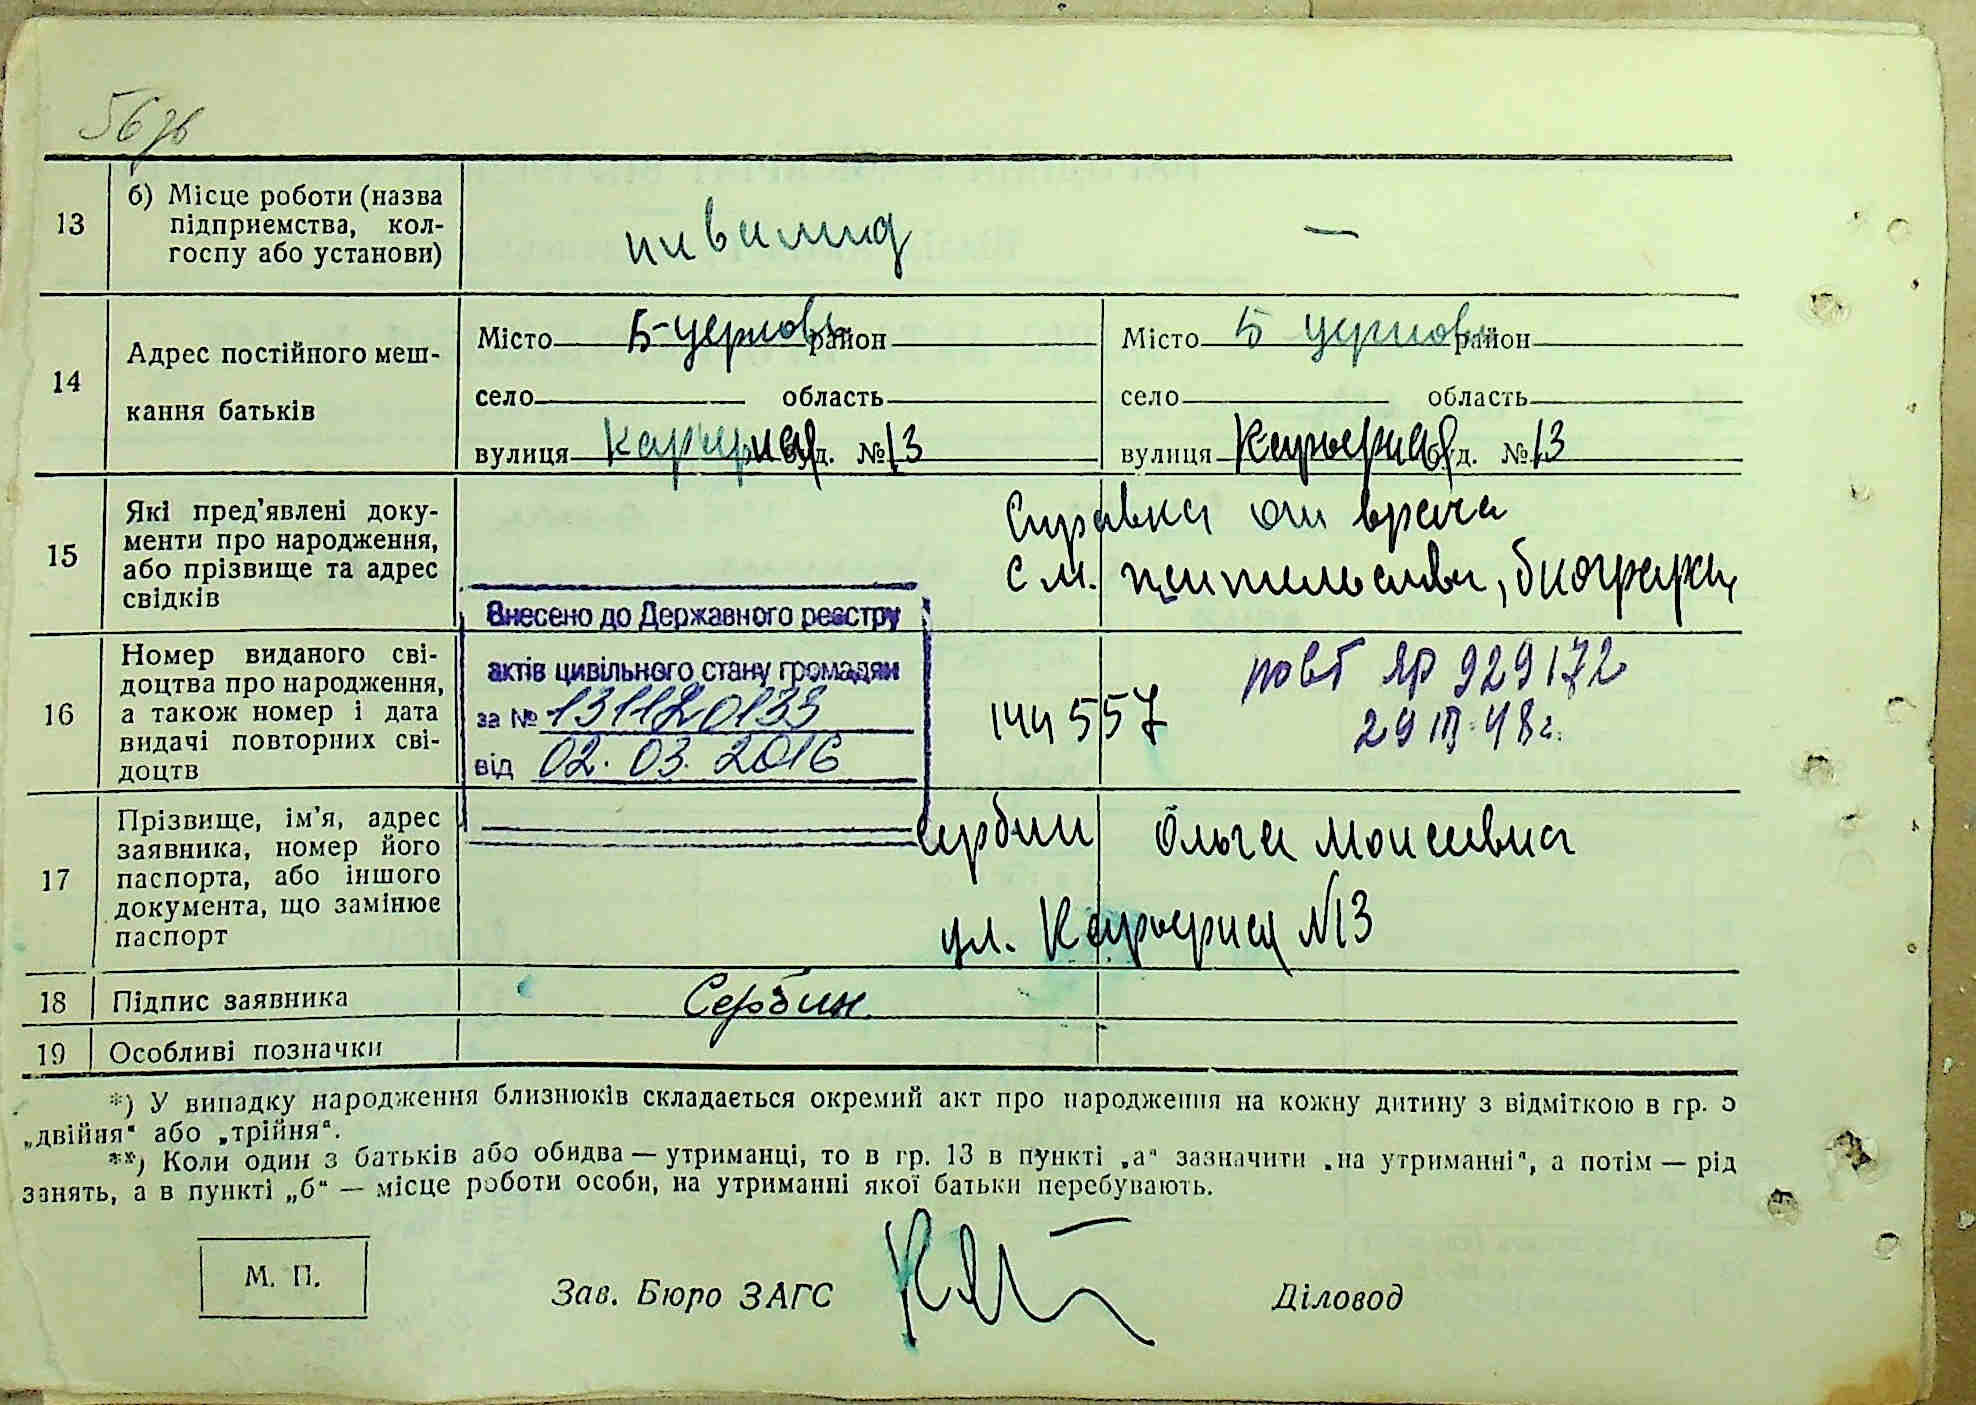 56 зв
13
б) Місце роботи (назва
підприємства, кол-
госпу або установи)
инвалид
—
14
Адрес постійного меш-
кання батьків
Місто Б-Черновы район
село область
вулиця Карьерная буд. № 13
Місто Б Черновы район
село область
вулиця Карьерная буд. № 13
15
Які пред'явлені доку-
менти про народження,
або прізвище та адрес
свідків
Справка от врача
см.
16
Номер виданого сві-
доцтва про народження,
а також номер і дата
видачі повторних сві-
доцтв
Внесено до Державного реєстру
актів цивільного стану громадян
за № 131120133
від 02.03.2016
144557
повт ЯР 929172
29 III 48 г.
17
Прізвище, ім'я, адрес
заявника, номер його
паспорта, або іншого
документа, що замінює
паспорт
Сербин Ольга Моисеевна
ул. Карьерная №13
18
Підпис заявника
Сербин
19
Особливі позначки
*) У випадку народження близнюків складається окремий акт про народження на кожну дитину з відміткою в гр. 3
„двійня" або „трійня".
**) Коли один з батьків або обидва — утриманці, то в гр. 13 в пункті „а" зазначити „на утриманні", а потім — рід
занять, а в пункті „б" — місце роботи особи, на утриманні якої батьки перебувають.
М. П.
Зав. Бюро ЗАГС
Діловод